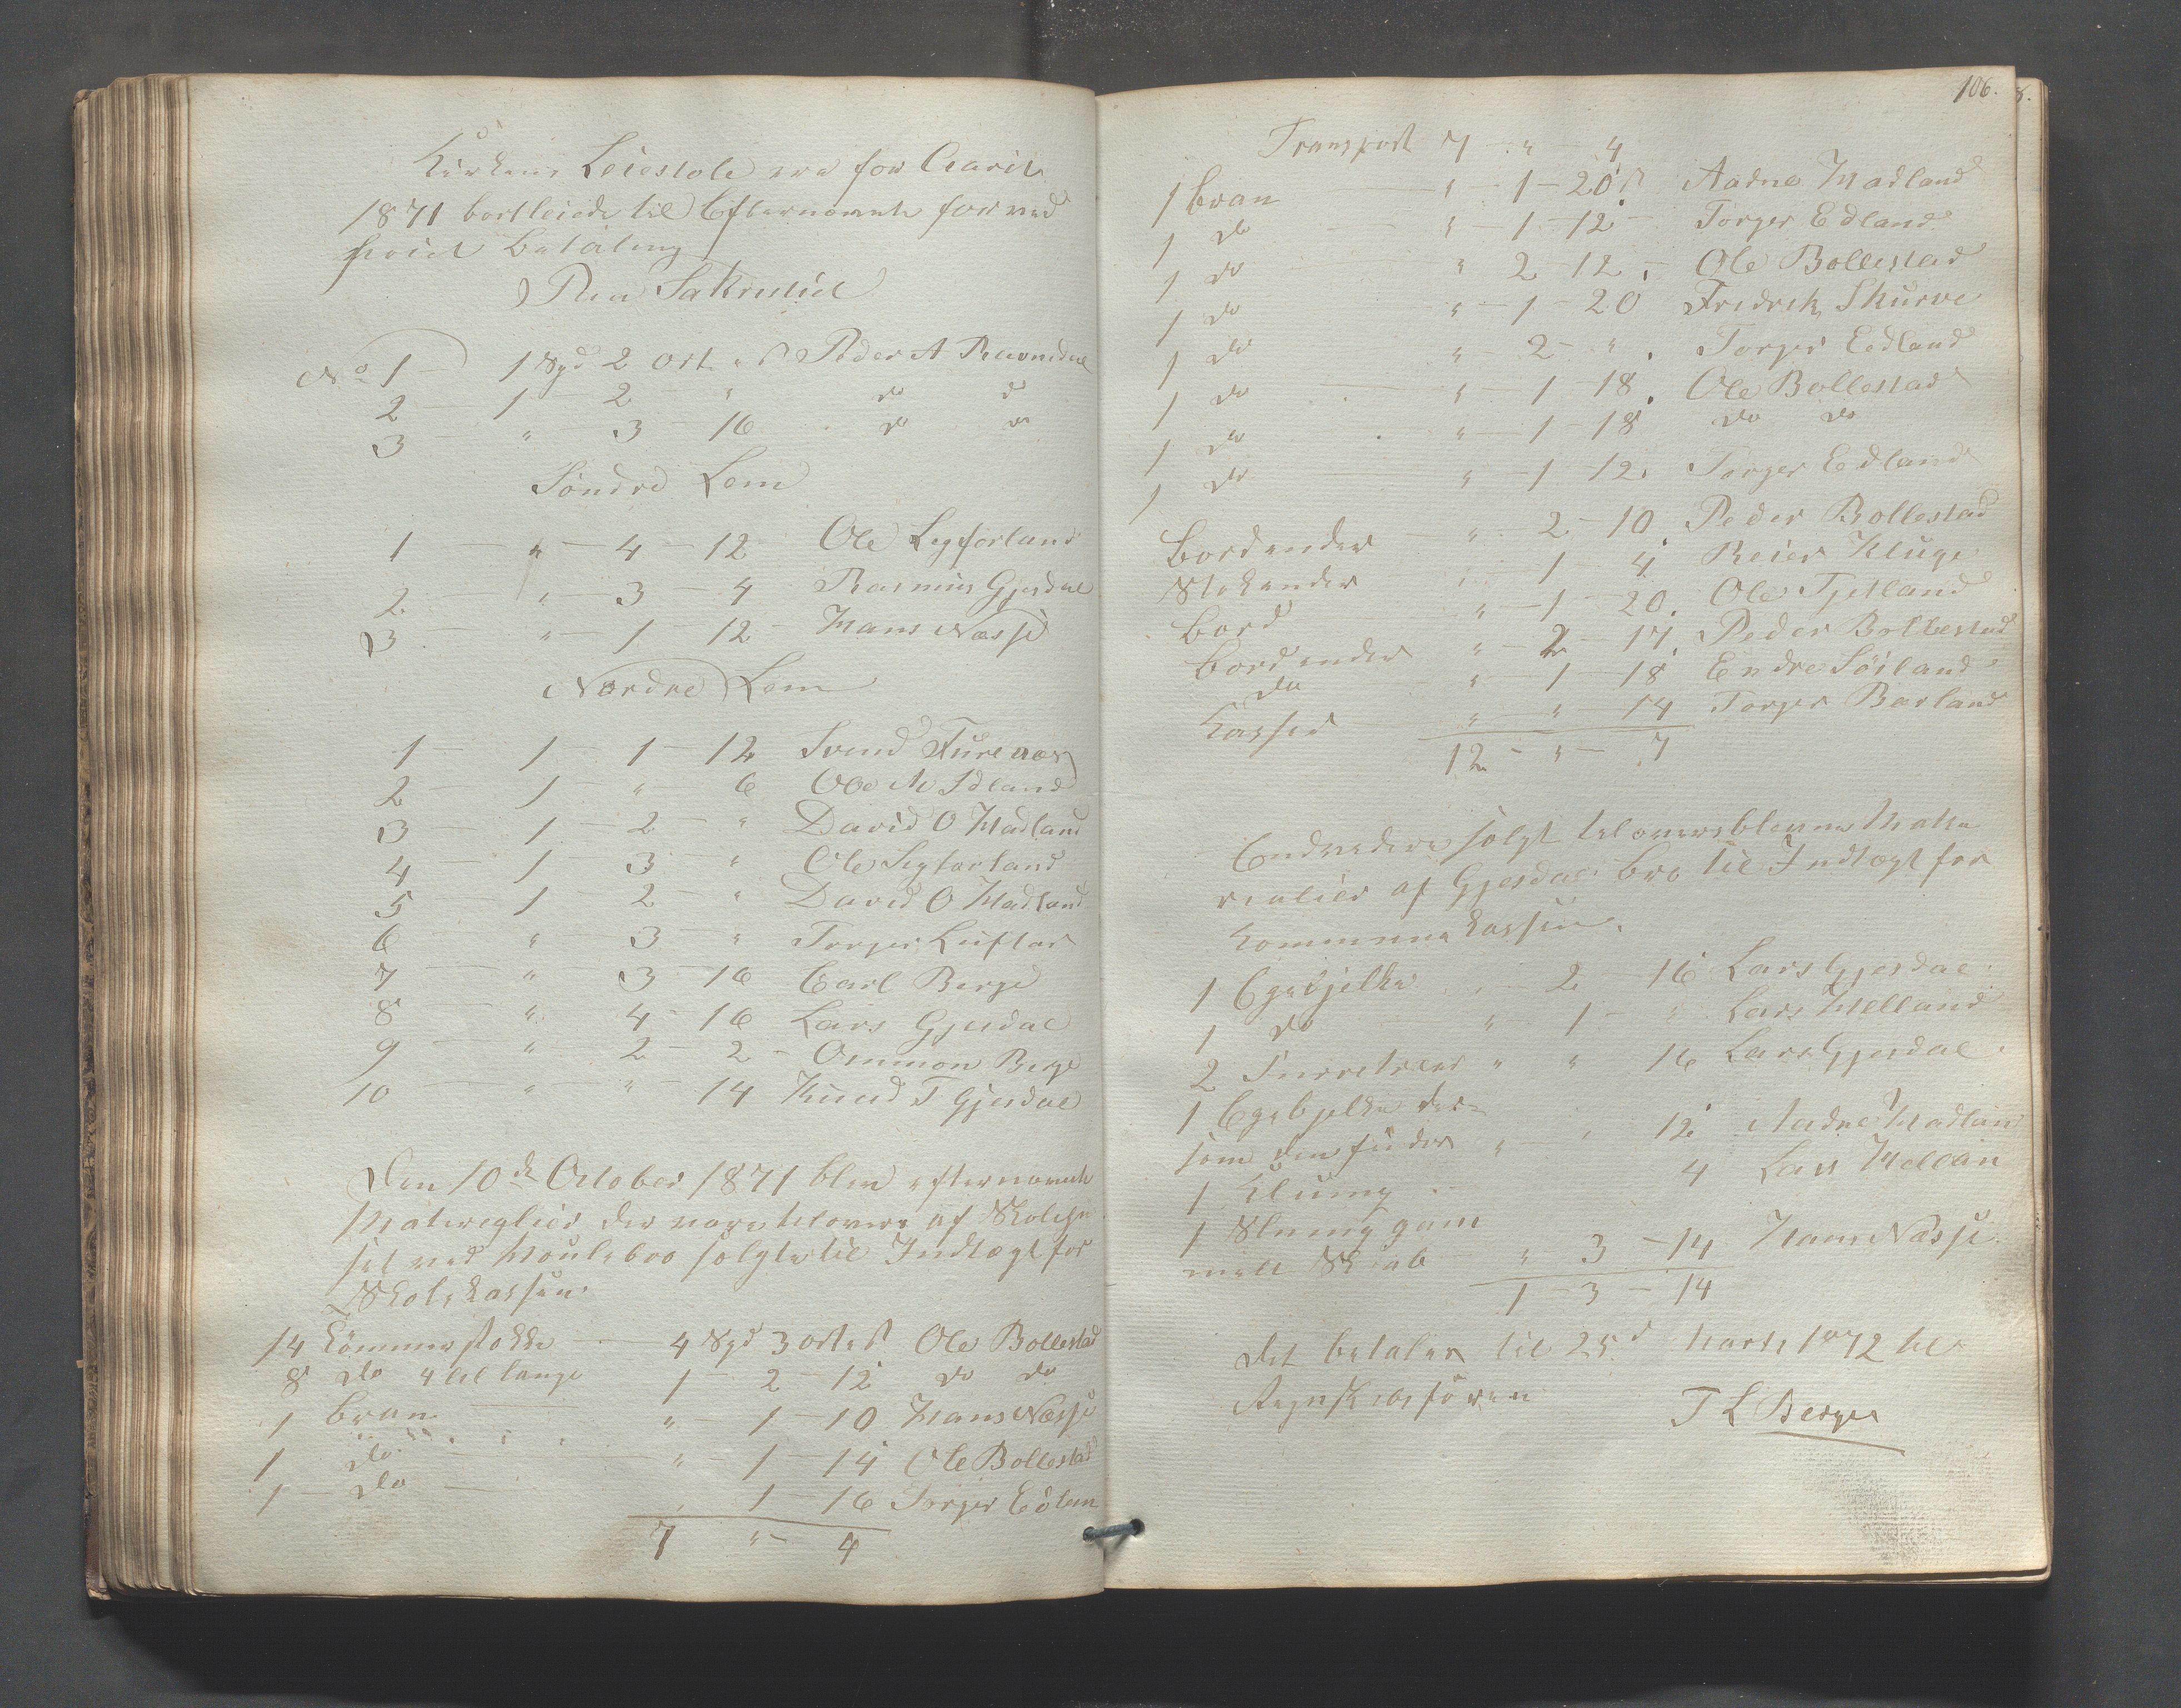 Kirkens Leiestole ere for Aaret
1871 bortleiede til Efternævnte for ved
föiet Betaling
Paa Sakristiet
No 1 — 1 Spd 2 Ort " ß Peder A Ravndal
2 — 1 — 2 — " do d
3 — " — 3 — 16 do do
Söndre Lem
1 — " — 4 — 12 Ole Legforland
2 — " — 3 — 4 Rasmus Gjesdal
3 — " — 1 — 12 Hans Næsse
Nordre Lem
1 — 1 — 1 — 12 Svend Furenæs
2 — 1 — " — 6 Ole Idland
3 — 1 — 2 — " David O Madland
4 — 1 — 3 — " Ole Legforland
5 — 1 — 2 — " David O Madland
6 — " — 3 — " Torger Luftar
7 — " — 3 — 16 Carl Berge
8 — " — 4 — 16 Lars Gjesdal
9 — " — 2 — 2 — Ommon Berge
10 — " — " — 14 Knud T Gjesdal
Den 10de October 1871 blev efternævnte
Matereglier der vare tilovers af Skolehu
set ved solgte til Indtægt for
Skolekassen.
14 Tömmerstokke — 4 Spd 3 ort " ß Ole Bollestad
8 do 4 til lange 1 — 2 — 12 do do
1 Bran — " — 1 — 10 Hans Næsse
1 do " — 1 — 14 Ole Bollestad
1 — do — 1 — 16 Torger Edlan
7 " — 4
106.
Transport 7 — " — 4
1 Bran " — 1 — 20 ß Aadne Madland
1 do " — 1 — 12 — Torger Edland
1 do " 2 — 12. — Ole Bollestad
1 do " — 1 — 20 Fredrik Skurve
1 do " 2 — " . Torger Edland
1 do " — 1 18. Ole Bollestad
1 do " — 1 — 18 do do
1 do " — 1 12. Torger Edland
Bordender " 2 — 10. Peder Bollestad
Stokender 1 4 Reier Kluge
Bord " — 1 — 20. Ole Tjetland
Bordender " — 2 — 17. Peder Bollestad
do " — 1 — 18 Endre Söiland
Kasser " " 14 Torger Borland
12 — " — 7
Endvidere solgt tiloversblevne Mate
rialier af Gjesdal Bro til Indtægt for
Kommunekassen.
1 Egebjelke . 2 16 Lars Gjesdal
1 do " 1 — " Lars Melland
2 Furretræer " " 16 Lars Gjesdal.
1 Egebjelke der
som den findes " 12 Aadne Madlan
1 4 Lars Mellan
1 gam
melt Skab " 3 — 14 Hans Næsse.
1 — 3 — 14
Det betales til 25d Marts 1872 til
Regnskabsföreren
T L Berge